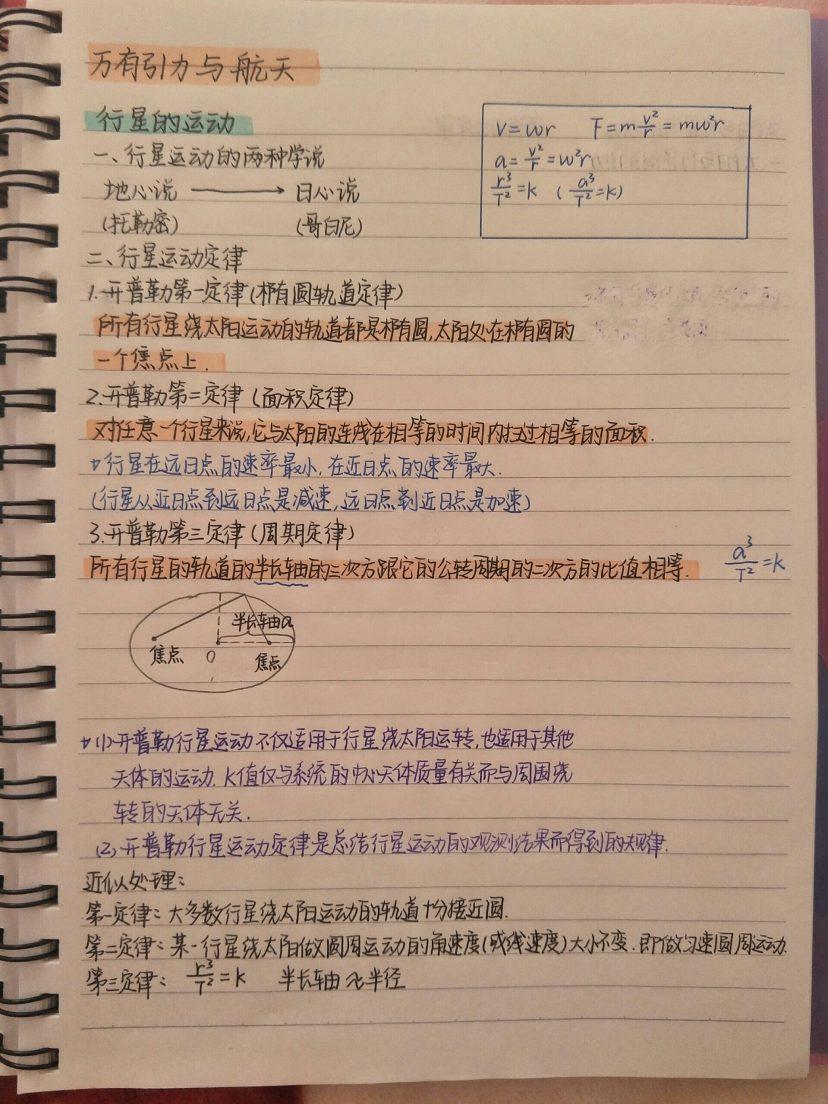 万有引力与航天
行星的运动
v=ωr  F=m v²/r=mω²r
a=v²/r=ω²r
r³/T²=k (a³/T²=k)
一、行星运动的两种学说
地心说 → 日心说
(托勒密) (哥白尼)
二、行星运动定律
1.开普勒第一定律(椭圆轨道定律)
所有行星绕太阳运动的轨道都是椭圆,太阳处在椭圆的
一个焦点上.
2.开普勒第二定律(面积定律)
对任意一个行星来说,它与太阳的连线在相等的时间内扫过相等的面积.
行星在远日点的速率最小,在近日点的速率最大.
(行星从近日点到远日点是减速,远日点到近日点是加速)
3.开普勒第三定律(周期定律)
所有行星的轨道的半长轴的三次方跟它的公转周期的二次方的比值相等. a³/T²=k
半长轴a
焦点 O 焦点
(1)开普勒行星运动不仅适用于行星绕太阳运转,也适用于其他
天体的运动.K值仅与系统的中心天体质量有关而与周围绕
转的天体无关.
(2)开普勒行星运动定律是总结行星运动的观测结果而得到的规律.
近似处理:
第一定律:大多数行星绕太阳运动的轨道十分接近圆.
第二定律:某一行星绕太阳做圆周运动的角速度(或线速度)大小不变.即做匀速圆周运动.
第三定律: r³/T²=k 半长轴≈半径